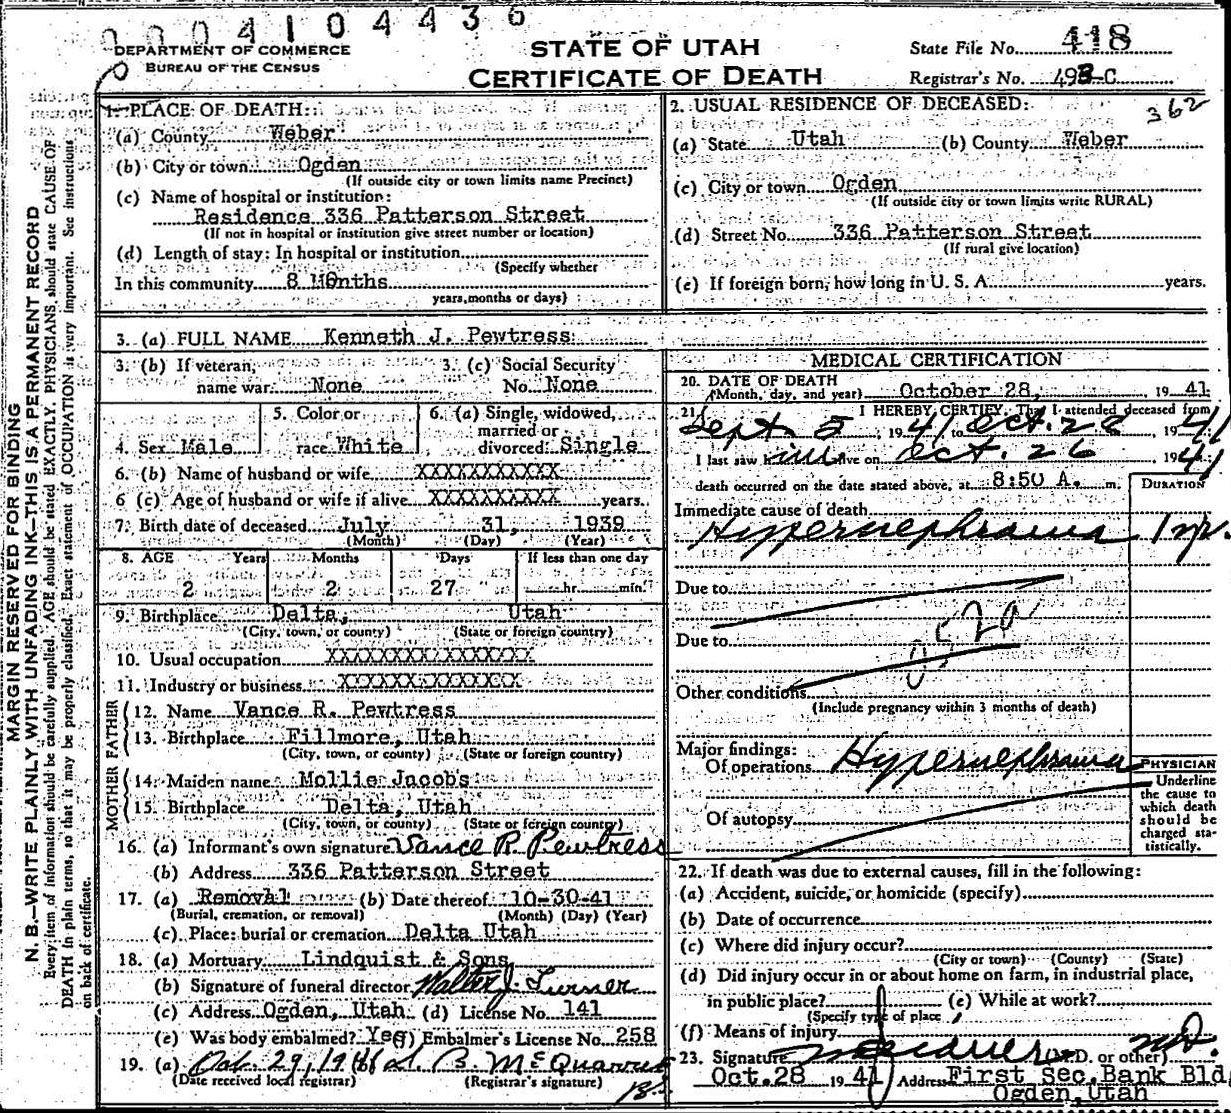 0004104436
DEPARTMENT OF COMMERCE
BUREAU OF THE CENSUS
STATE OF UTAH
CERTIFICATE OF DEATH
State File No. 418
Registrar's No. 493-C
MARGIN RESERVED FOR BINDING
N. B.—WRITE PLAINLY WITH UNFADING INK—THIS IS A PERMANENT RECORD
Every item of information should be carefully supplied. AGE should be stated EXACTLY. PHYSICIANS should state CAUSE OF
DEATH in plain terms, so that it may be properly classified. Exact statement of OCCUPATION is very important. See instructions
on back of certificate.
1. PLACE OF DEATH:
(a) County Weber
(b) City or town Ogden
(If outside city or town limits name Precinct)
(c) Name of hospital or institution:
Residence 336 Patterson Street
(If not in hospital or institution give street number or location)
(d) Length of stay: In hospital or institution
(Specify whether
In this community 8 Months
years, months or days)
2. USUAL RESIDENCE OF DECEASED:
362
(a) State Utah (b) County Weber
(c) City or town Ogden
(If outside city or town limits write RURAL)
(d) Street No. 336 Patterson Street
(If rural give location)
(e) If foreign born, how long in U. S. A. years.
3. (a) FULL NAME Kenneth J. Pewtress
3. (b) If veteran, name war None
3. (c) Social Security No. None
4. Sex Male
5. Color or race White
6. (a) Single, widowed, married or divorced Single
6. (b) Name of husband or wife XXXXXXXXXXX
6 (c) Age of husband or wife if alive XXXXXXXXXX years.
7. Birth date of deceased July 31, 1939
(Month) (Day) (Year)
8. AGE Years Months Days If less than one day
2 2 27 hr. min.
9. Birthplace Delta, Utah
(City, town, or county) (State or foreign country)
10. Usual occupation XXXXXXXXXXXXXXXX
11. Industry or business XXXXXXXXXXXXXX
FATHER
12. Name Vance R. Pewtress
13. Birthplace Fillmore, Utah
(City, town, or county) (State or foreign country)
MOTHER
14. Maiden name Mollie Jacobs
15. Birthplace Delta, Utah
(City, town, or county) (State or foreign country)
16. (a) Informant's own signature Vance R Pewtress
(b) Address 336 Patterson Street
17. (a) Removal (b) Date thereof 10-30-41
(Burial, cremation, or removal) (Month) (Day) (Year)
(c) Place: burial or cremation Delta Utah
18. (a) Mortuary Lindquist & Sons
(b) Signature of funeral director Walter J. Turner
(c) Address Ogden, Utah (d) License No. 141
(e) Was body embalmed? Yes (f) Embalmer's License No. 258
19. (a) Oct. 29, 1941 (b)
(Date received local registrar) (Registrar's signature)
MEDICAL CERTIFICATION
20. DATE OF DEATH
(Month, day, and year) October 28, 1941
21. I HEREBY CERTIFY, That I attended deceased from
Sept 5, 1941 to Oct. 28 1941
I last saw him alive on Oct. 26 1941
death occurred on the date stated above, at 8:50 A. m. DURATION
Immediate cause of death
Hypernephroma 1 yr.
Due to
Due to 052a
Other conditions
(Include pregnancy within 3 months of death)
Major findings:
Of operations Hypernephroma
Of autopsy
PHYSICIAN
Underline
the cause to
which death
should be
charged sta-
tistically.
22. If death was due to external causes, fill in the following:
(a) Accident, suicide, or homicide (specify)
(b) Date of occurrence
(c) Where did injury occur?
(City or town) (County) (State)
(d) Did injury occur in or about home on farm, in industrial place,
in public place? (e) While at work?
(Specify type of place)
(f) Means of injury
23. Signature (M.D. or other) M.D.
Oct. 28 1941 Address First Sec. Bank Bld
Ogden, Utah